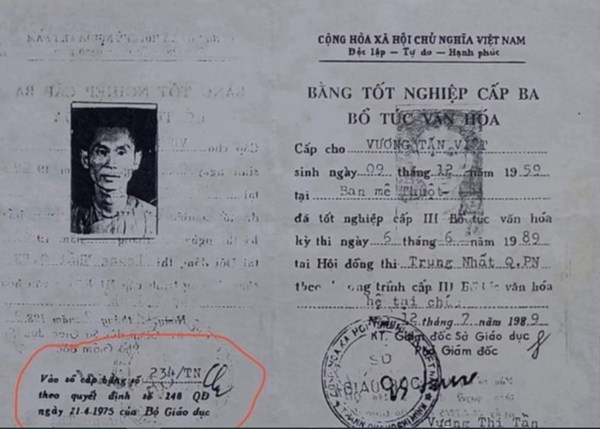 CỘNG HÒA XÃ HỘI CHỦ NGHĨA VIỆT NAM
Độc lập — Tự do — Hạnh phúc
BẰNG TỐT NGHIỆP CẤP BA
BỔ TÚC VĂN HÓA
Cấp cho VƯƠNG TẤN VIỆT
sinh ngày 09 tháng 12 năm 1959
tại Ban mê Thuột
đã tốt nghiệp cấp III Bổ túc văn hóa
kỳ thi ngày 6 tháng 6 năm 1989
tại Hội đồng thi Trung Nhất Q.PN
trình cấp III
hệ tại chức
12 tháng 7 năm 1989
KT. Giám đốc Sở Giáo dục
Phó Giám đốc
Vương Thị Tần
Vào sổ cấp bằng số 234/TN
theo quyết định số 248 QĐ
ngày 21.4.1975 của Bộ Giáo dục